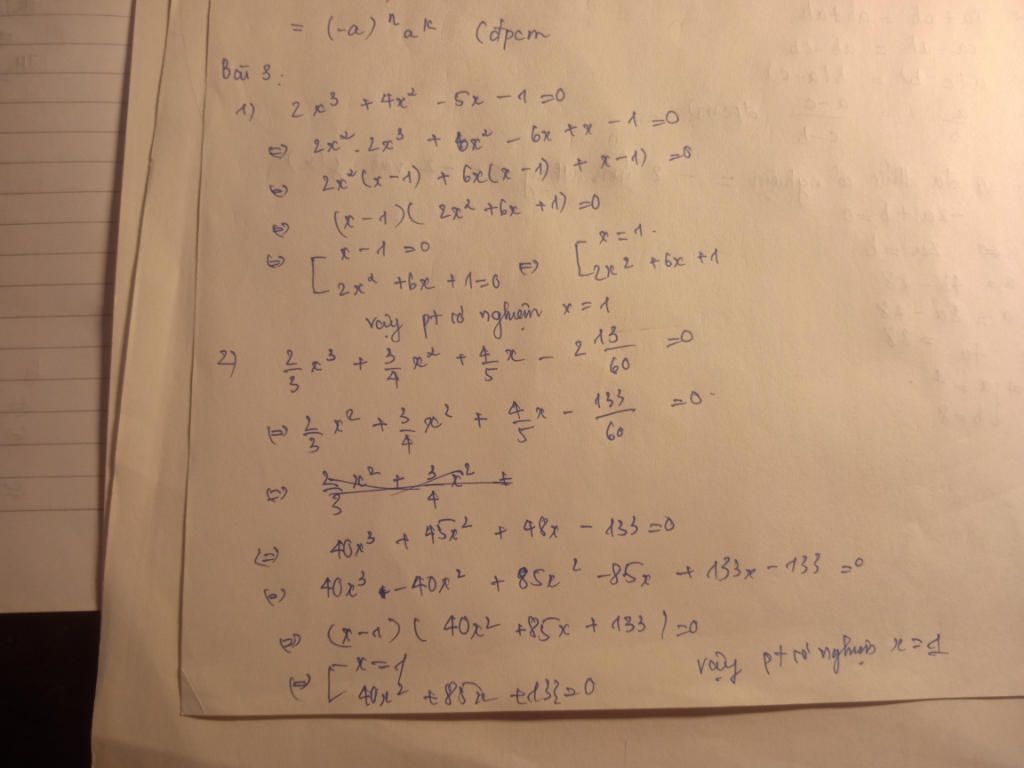 = (-a)ⁿ aᵏ (đpcm
Bài 3:
1) 2x³ + 4x² - 5x - 1 = 0
⇔ 2x² - 2x³ + 6x² - 6x + x - 1 = 0
⇔ 2x²(x-1) + 6x(x-1) + x-1) = 0
⇔ (x-1)(2x² + 6x + 1) = 0
⇔ [ x - 1 = 0 ⇔ [ x = 1.
2x² + 6x + 1 = 0 2x² + 6x + 1
vậy pt có nghiệm x = 1
2) 2/3 x³ + 3/4 x² + 4/5 x - 2 13/60 = 0
⇔ 2/3 x² + 3/4 x² + 4/5 x - 133/60 = 0.
⇔
⇔ 40x³ + 45x² + 48x - 133 = 0
⇔ 40x³ - 40x² + 85x² - 85x + 133x - 133 = 0
⇔ (x-1)(40x² + 85x + 133) = 0
⇔ [ x = 1
40x² + 85x + 133 = 0 vậy pt có nghiệm x = 1